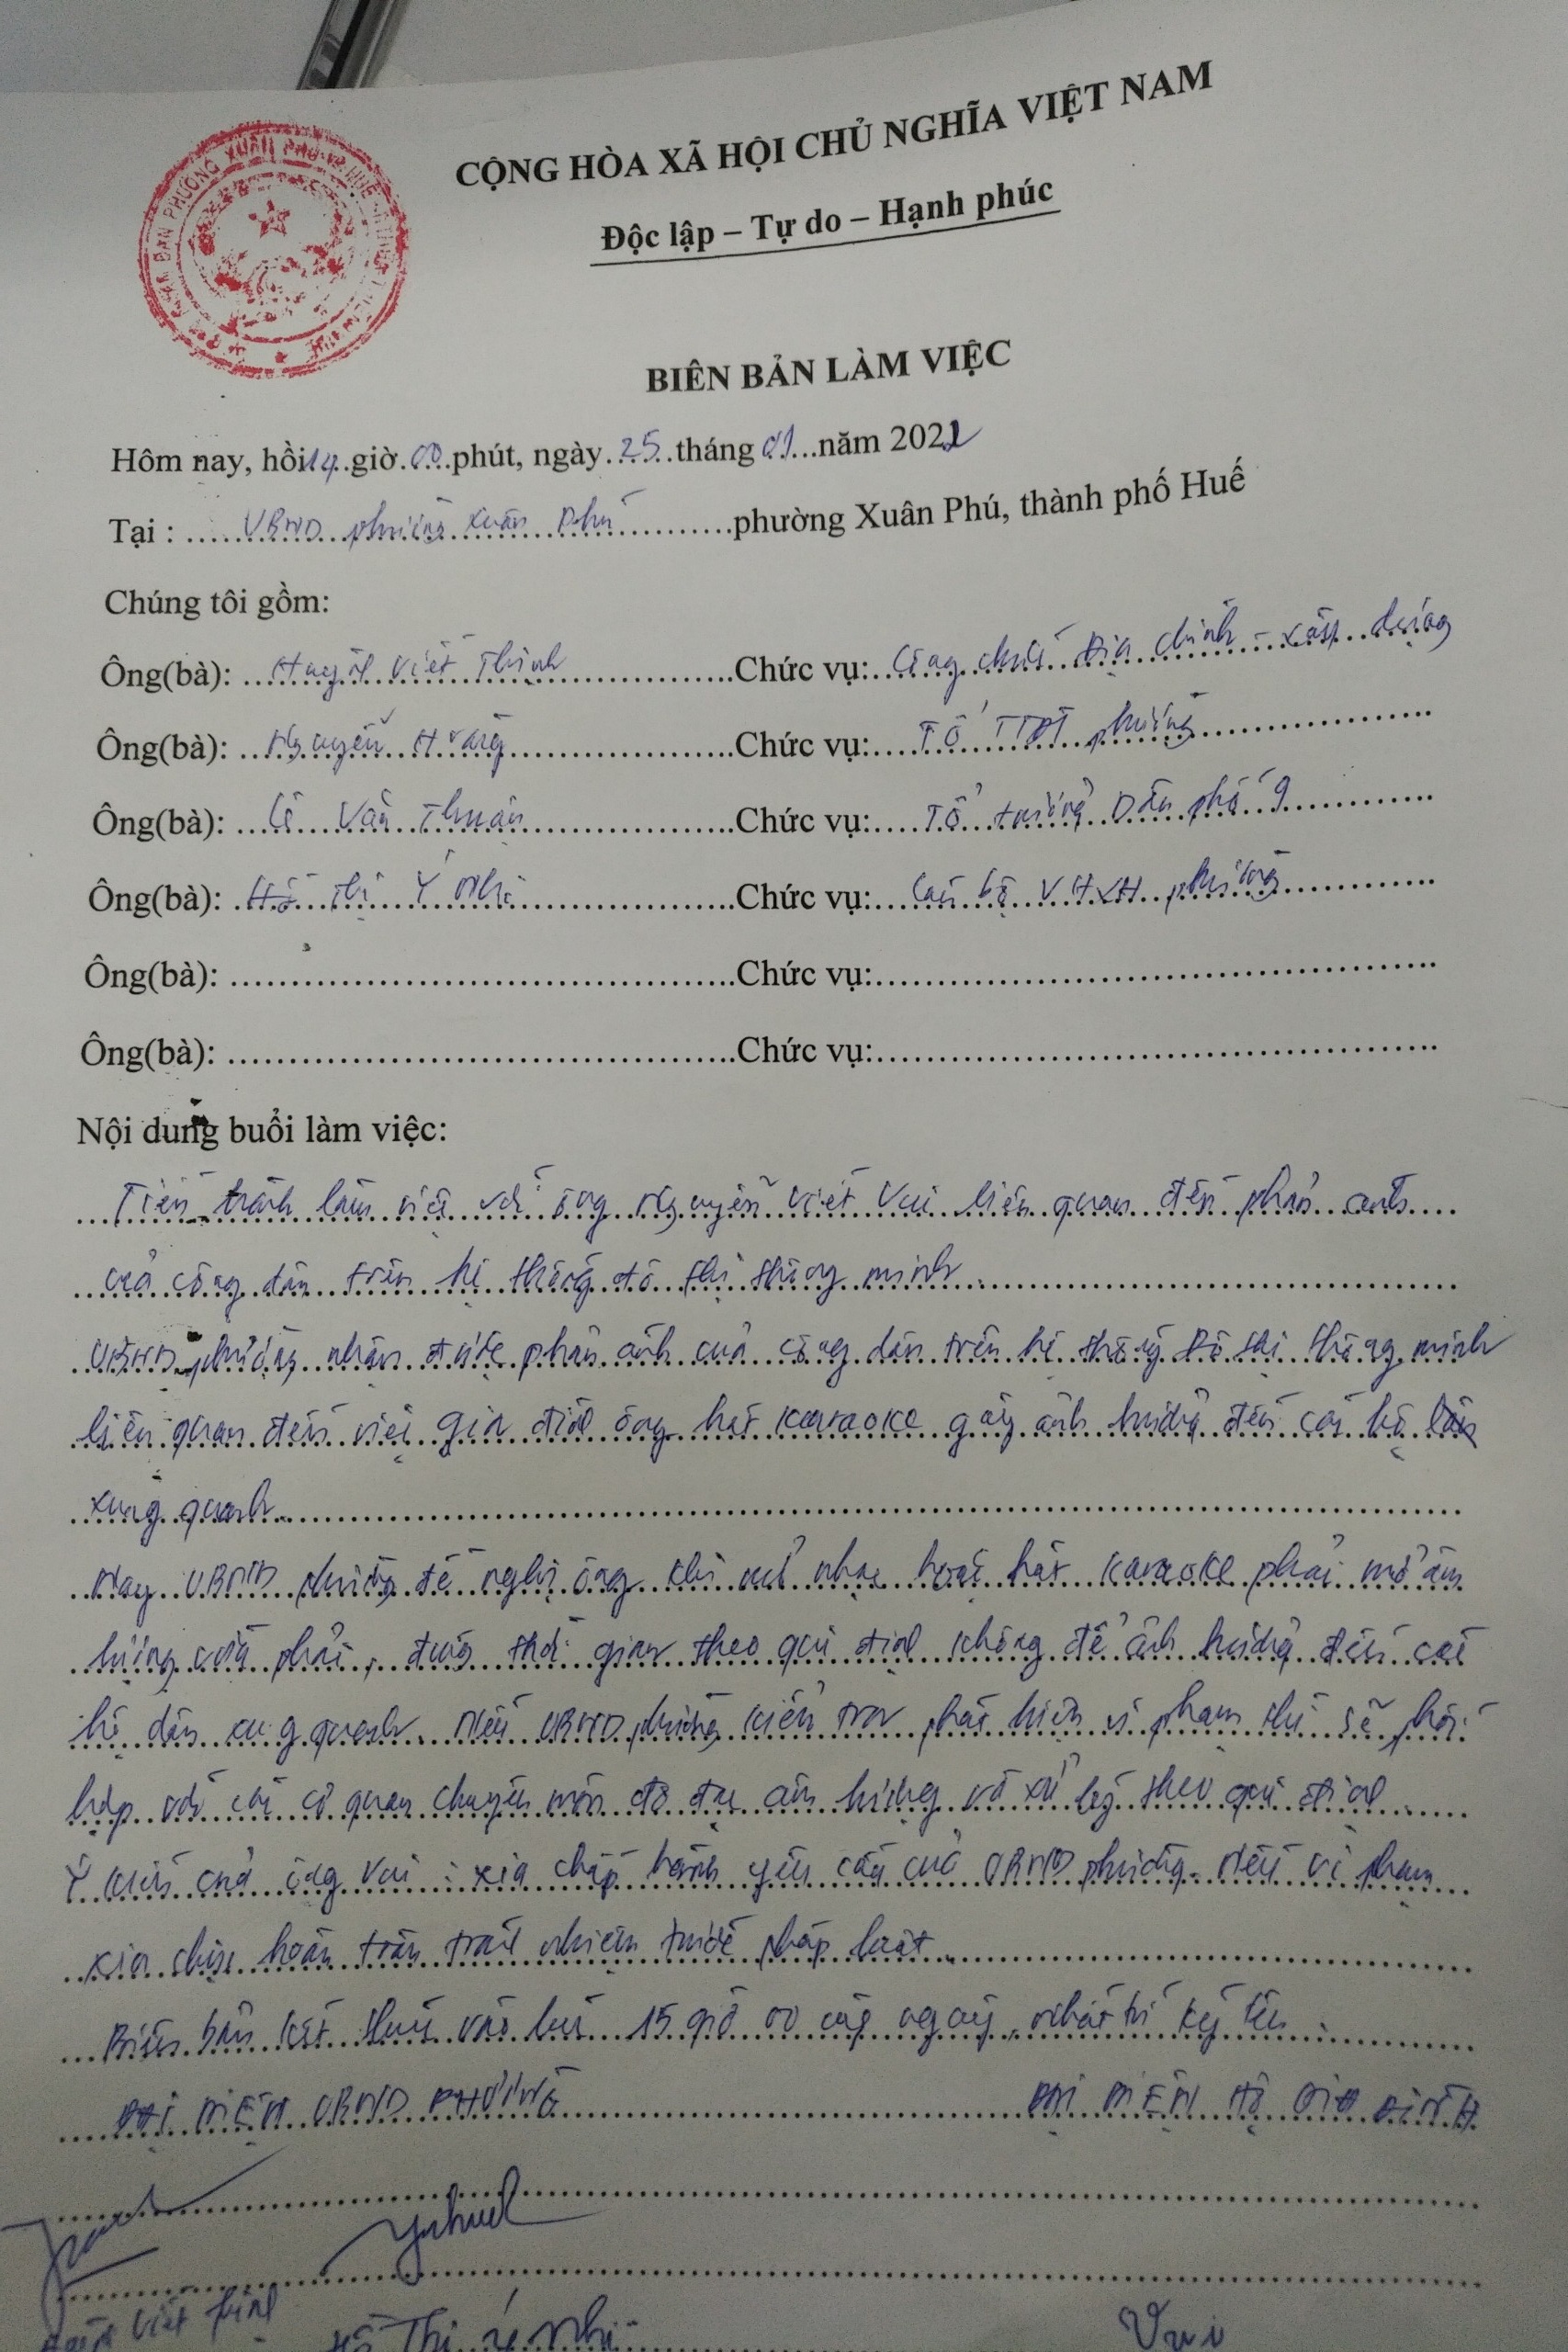 CỘNG HÒA XÃ HỘI CHỦ NGHĨA VIỆT NAM
Độc lập – Tự do – Hạnh phúc
BIÊN BẢN LÀM VIỆC
Hôm nay, hồi 14 giờ 00 phút, ngày 25 tháng 01 năm 202
Tại : UBND phường Xuân Phú phường Xuân Phú, thành phố Huế
Chúng tôi gồm:
Ông(bà): Viết Thịnh Chức vụ: Công chức Địa chính - xây dựng
Ông(bà): Nguyễn Hoàng Chức vụ: Tổ TTĐT phường
Ông(bà): Lê Văn Thuận Chức vụ: Tổ trưởng Dân phố 9
Ông(bà): Hồ Thị Ý Nhi Chức vụ: Cán bộ VHXH phường
Ông(bà): Chức vụ:
Ông(bà): Chức vụ:
Nội dung buổi làm việc:
Tiến hành làm việc với ông Nguyễn Viết Vui liên quan đến phản ánh
của công dân trên hệ thống đô thị thông minh.
UBND phường nhận được phản ánh của công dân trên hệ thống Đô thị thông minh
liên quan đến việc gia đình ông hát karaoke gây ảnh hưởng đến các hộ dân
xung quanh.
Nay UBND phường đề nghị ông khi mở nhạc hoặc hát karaoke phải mở âm
lượng vừa phải, đúng thời gian theo qui định không để ảnh hưởng đến các
hộ dân xung quanh. Nếu UBND phường kiểm tra phát hiện vi phạm thì sẽ phối
hợp với các cơ quan chuyên môn đo đạc âm lượng và xử lý theo qui định.
Ý kiến của ông Vui : xin chấp hành yêu cầu của UBND phường. Nếu vi phạm
xin chịu hoàn toàn trách nhiệm trước pháp luật.
Biên bản kết thúc vào lúc 15 giờ 00 cùng ngày, nhất trí ký tên.
ĐẠI DIỆN UBND PHƯỜNG ĐẠI DIỆN HỘ GIA ĐÌNH
Viết Thịnh Hồ Thị Ý Nhi Vui